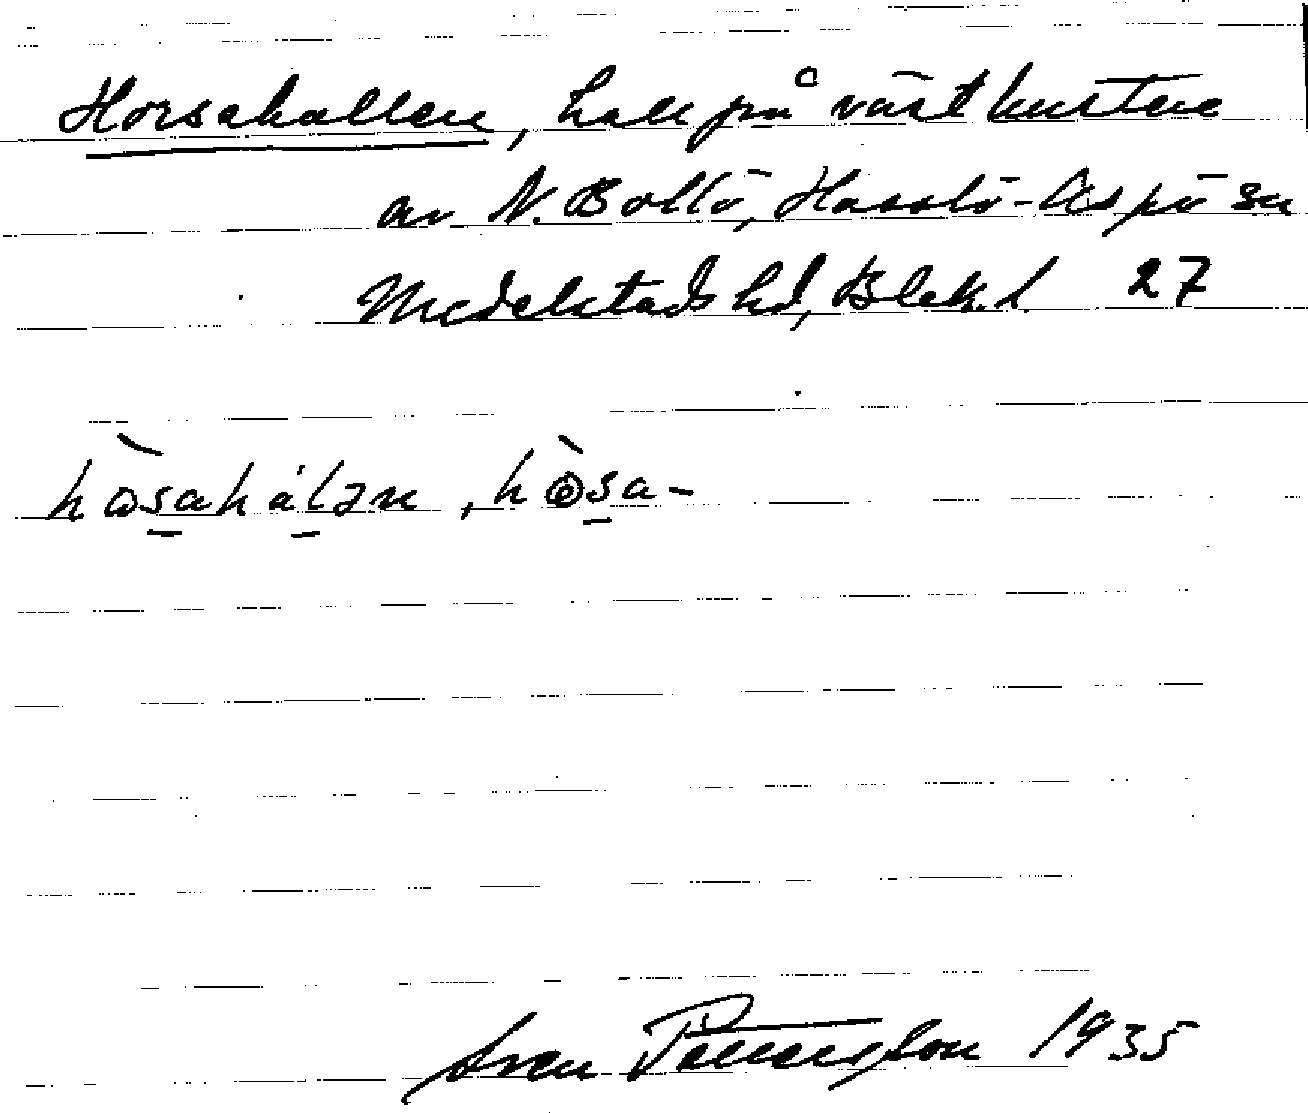 Horsahallen, hall på västkusten
av N. Bollö, Hasslö-Aspö sn
Medelstads hd, Blek. l. 27
hòsahálən, hòsa-
Sven Benson 1935